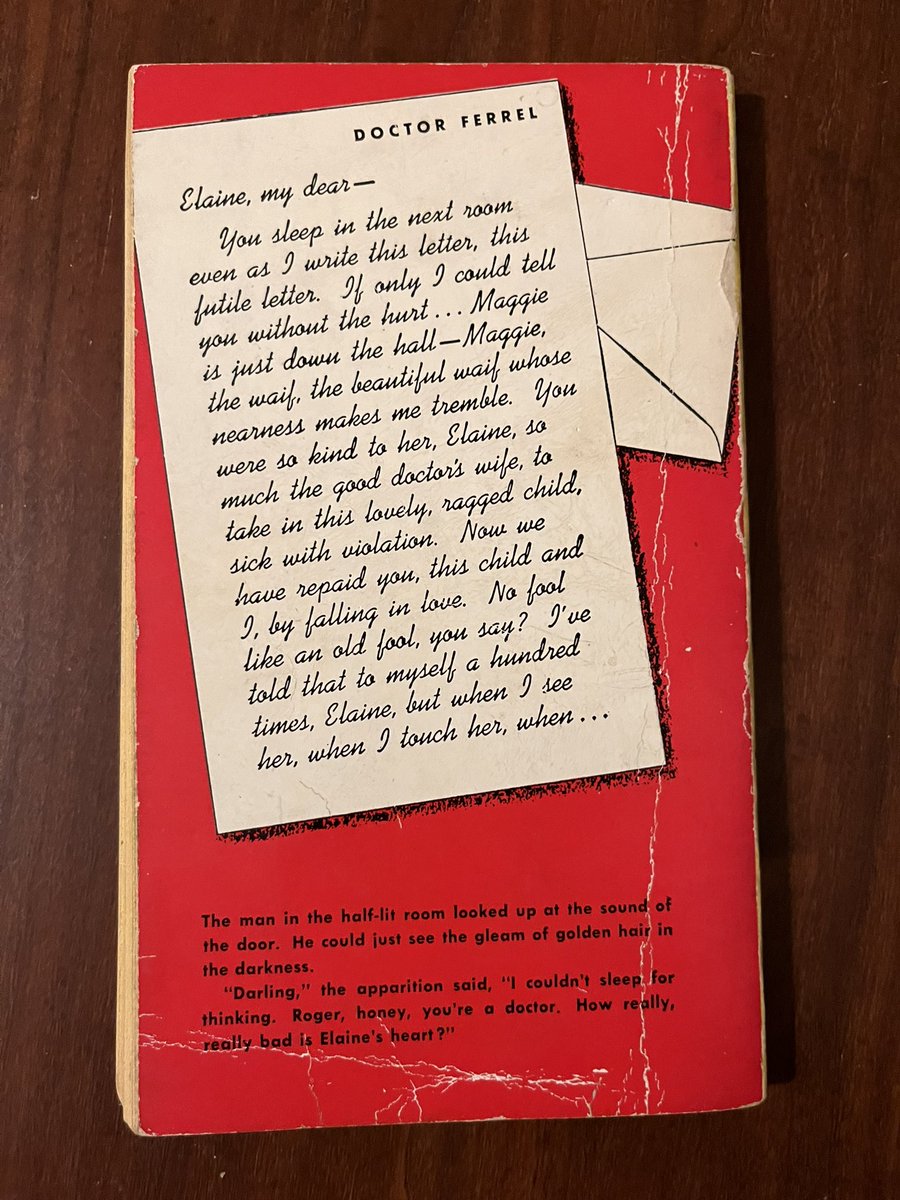 DOCTOR FERREL
Elaine, my dear—
You sleep in the next room
even as I write this letter, this
futile letter. If only I could tell
you without the hurt... Maggie
is just down the hall—Maggie,
the waif, the beautiful waif whose
nearness makes me tremble. You
were so kind to her, Elaine, so
much the good doctor's wife, to
take in this lovely, ragged child,
sick with violation. Now we
have repaid you, this child and
I, by falling in love. No fool
like an old fool, you say? I've
told that to myself a hundred
times, Elaine, but when I see
her, when I touch her, when...
The man in the half-lit room looked up at the sound of
the door. He could just see the gleam of golden hair in
the darkness.
"Darling," the apparition said, "I couldn't sleep for
thinking. Roger, honey, you're a doctor. How really,
really bad is Elaine's heart?"